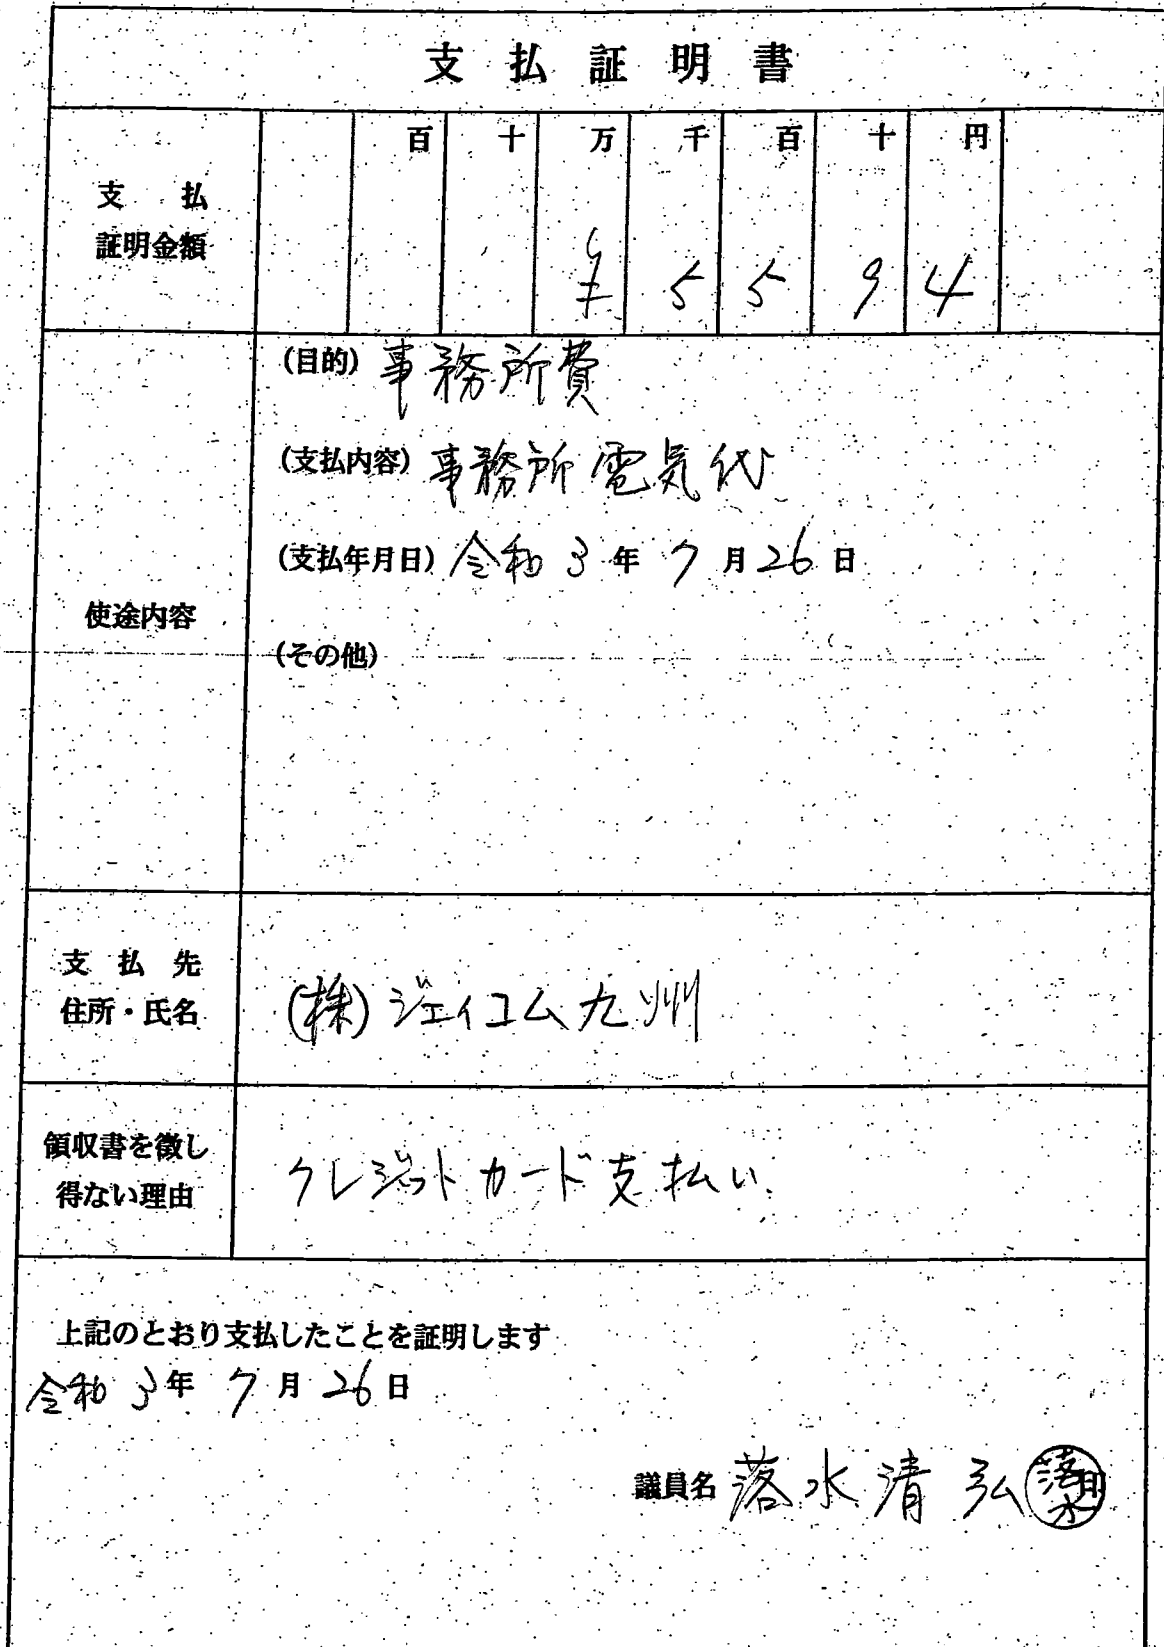 支払証明書
百 十 万 千 百 十 円
支払
証明金額
¥ 5 5 9 4
(目的) 事務所費
(支払内容) 事務所電気代
(支払年月日) 令和 3 年 7 月 26 日
使途内容
(その他)
支払先
住所・氏名
(株)ジェイコム九州
領収書を徴し
得ない理由
クレジットカード支払い
上記のとおり支払したことを証明します
令和 3 年 7 月 26 日
議員名 落水清弘 落水 印